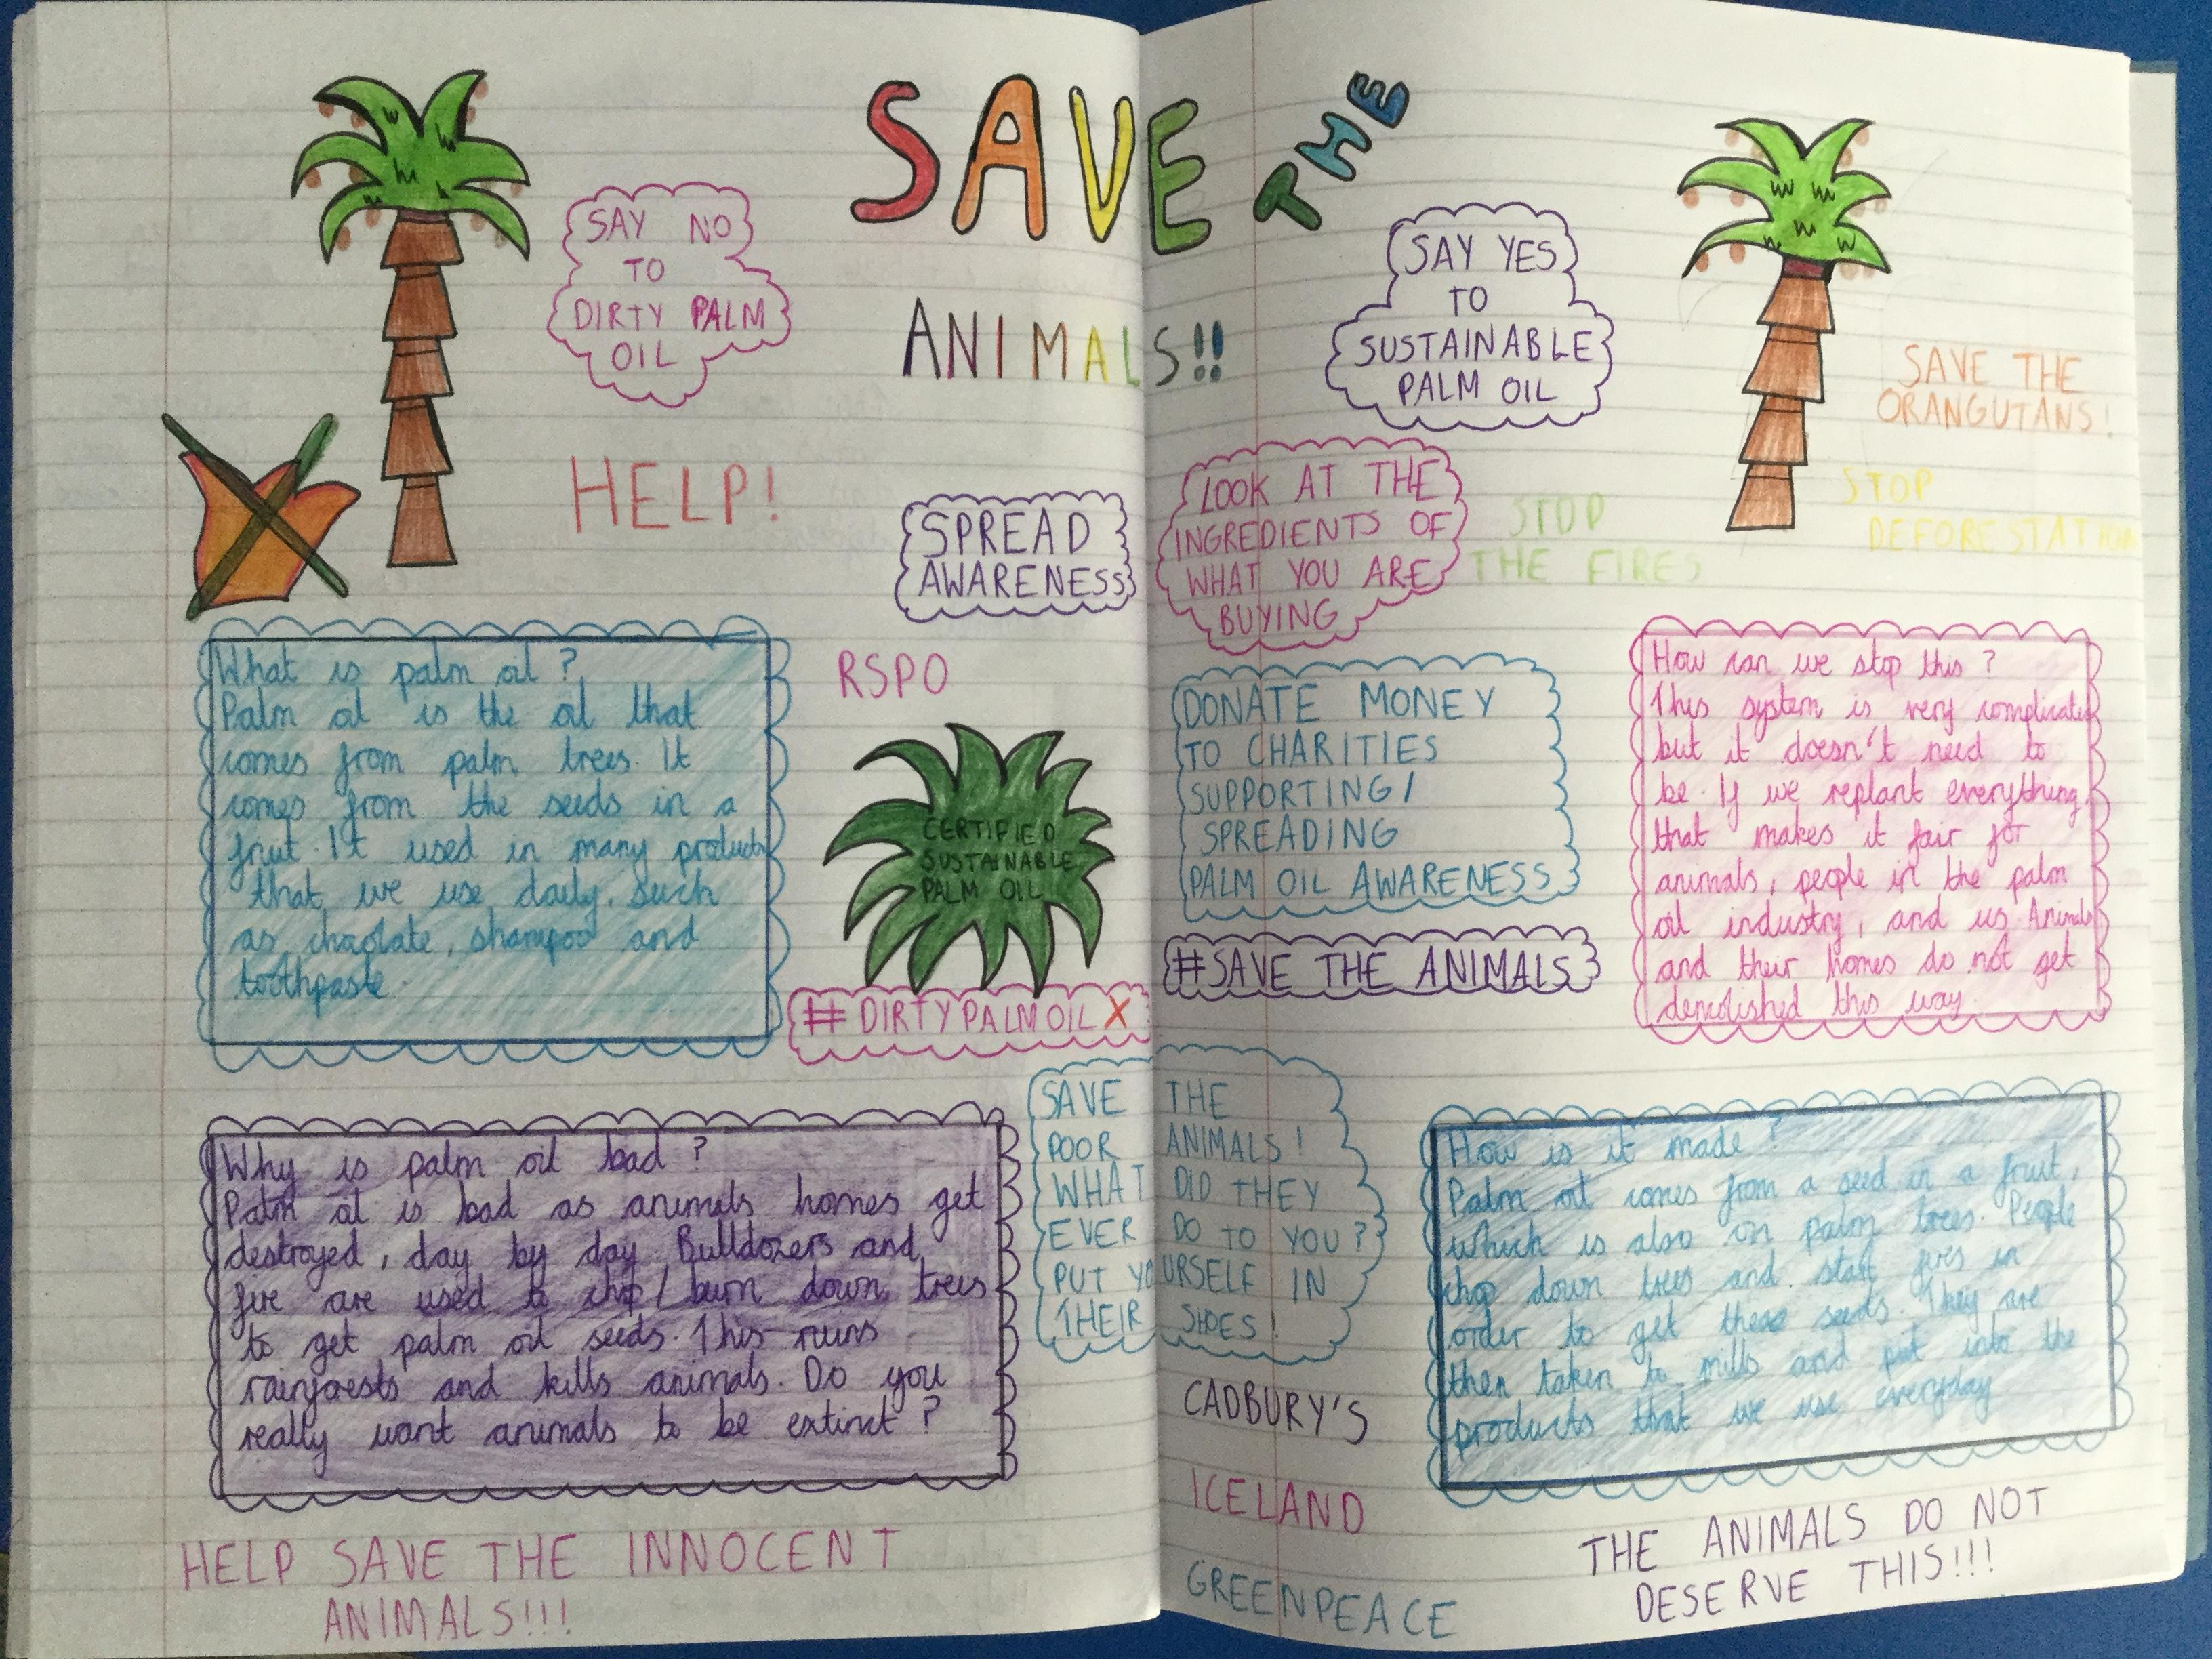 SAVE THE
ANIMALS!!
SAY NO
TO
DIRTY PALM
OIL
SAY YES
TO
SUSTAINABLE
PALM OIL
SAVE THE
ORANGUTANS!
HELP!
SPREAD
AWARENESS
LOOK AT THE
INGREDIENTS OF
WHAT YOU ARE
BUYING
STOP
THE FIRES
STOP
DEFORESTATION
What is palm oil ?
Palm oil is the oil that
comes from palm trees. It
comes from the seeds in a
fruit. It used in many products
that we use daily, such
as choclate, shampoo and
toothpaste.
RSPO
CERTIFIED
SUSTAINABLE
PALM OIL
#DIRTYPALMOIL X
DONATE MONEY
TO CHARITIES
SUPPORTING/
SPREADING
PALM OIL AWARENESS
#SAVE THE ANIMALS
How can we stop this ?
This system is very complicated
but it doesn't need to
be. If we replant everything,
that makes it fair for
animals, people in the palm
oil industry, and us. Animals
and their homes do not get
demolished this way.
Why is palm oil bad ?
Palm oil is bad as animals homes get
destroyed, day by day. Bulldozers and
fire are used to chop/burn down trees
to get palm oil seeds. This ruins
rainforests and kills animals. Do you
really want animals to be extinct ?
SAVE THE
POOR ANIMALS!
WHAT DID THEY
EVER DO TO YOU?
PUT YOURSELF IN
THEIR SHOES!
How is it made ?
Palm oil comes from a seed in a fruit,
which is also on palm trees. People
chop down trees and start fires in
order to get these seeds. They are
then taken to mills and put into the
products that we use everyday
CADBURY'S
ICELAND
GREENPEACE
HELP SAVE THE INNOCENT
ANIMALS!!!
THE ANIMALS DO NOT
DESERVE THIS!!!